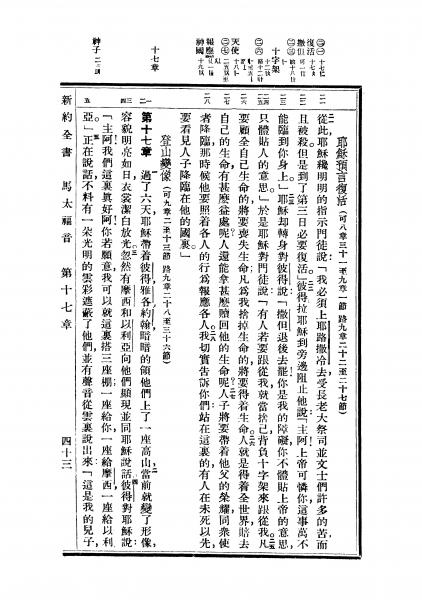 復活
撒但
十字架
天使
報應
神國
十七章
神子
耶穌預言復活（可八章三十一至九章一節 路九章二十二至二十七節）
從此耶穌纔明明的指示門徒說「我必須上耶路撒冷去受長老大祭司並文士們許多的苦而
且被殺但是到了第三日必要復活」彼得拉耶穌到旁邊阻止他說「主阿上帝可憐你這事萬不
能臨到你身上」耶穌却轉身對彼得說「撒但退後去罷你是我的障礙你不體貼上帝的意思
只體貼人的意思」於是耶穌對門徒說「有人若要跟從我就當捨己背負十字架來跟從我凡
要顧全自己生命的將要喪失生命凡爲我捨掉生命的將要得着生命人就是得着全世界賠去
自己的生命有甚麼益處呢人還能拿甚麼贖回他的生命呢人子將要帶着他父的榮耀同衆使
者降臨那時候他要照着各人的行爲報應各人我切實告訴你們站在這裏的有人在未死以先
要看見人子降臨在他的國裏」
登山變像（可九章二至十三節 路九章二十八至三十六節）
第十七章 過了六天耶穌帶着彼得雅各約翰暗暗的領他們上了一座高山當前就變了形像
容貌明亮如日衣裳潔白放光忽然有摩西和以利亞向他們顯現並同耶穌說話彼得對耶穌說
「主阿我們這裏眞好阿你若願意我可以就這裏搭三座棚一座給你一座給摩西一座給以利
亞」正在說話不料有一朶光明的雲彩遮蔽了他們並有聲音從雲裏說出來「這是我的兒子
新約全書 馬太福音 第十七章 四十三